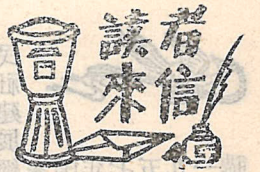 讀者
來信